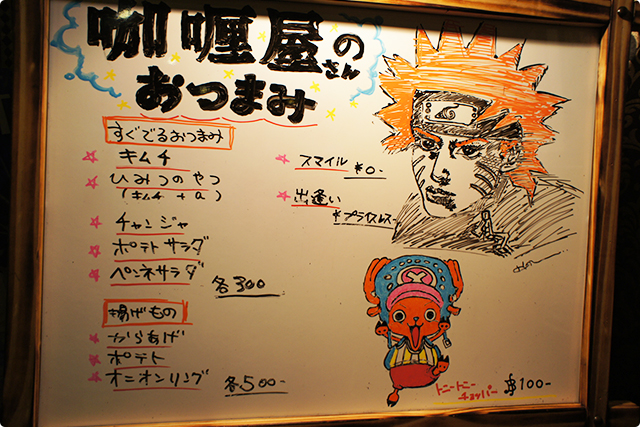 咖喱屋さんの
おつまみ
すぐでるおつまみ
キムチ
ひみつのやつ
(キムチ+α)
チャンジャ
ポテトサラダ
ペンネサラダ 各300
揚げもの
からあげ
ポテト
オニオンリング 各500-
スマイル ¥0-
出逢い
¥プライスレス-
トニートニー
チョッパー
฿100-